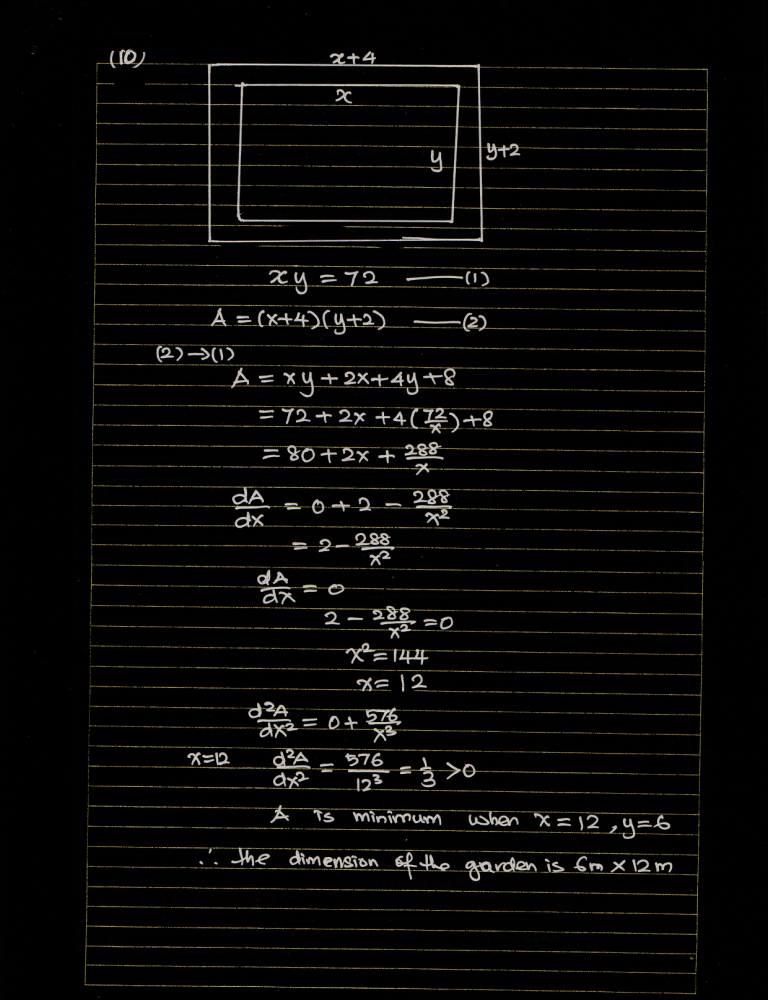 (10)
x+4
x
y
y+2
xy = 72 ——(1)
A = (x+4)(y+2) ——(2)
(2)→(1)
A = xy + 2x + 4y + 8
= 72 + 2x + 4(72/x) + 8
= 80 + 2x + 288/x
dA/dx = 0 + 2 - 288/x²
= 2 - 288/x²
dA/dx = 0
2 - 288/x² = 0
x² = 144
x = 12
d²A/dx² = 0 + 576/x³
x=12 d²A/dx² = 576/12³ = 1/3 >0
A is minimum when x = 12, y = 6
∴ the dimension of the garden is 6m × 12m